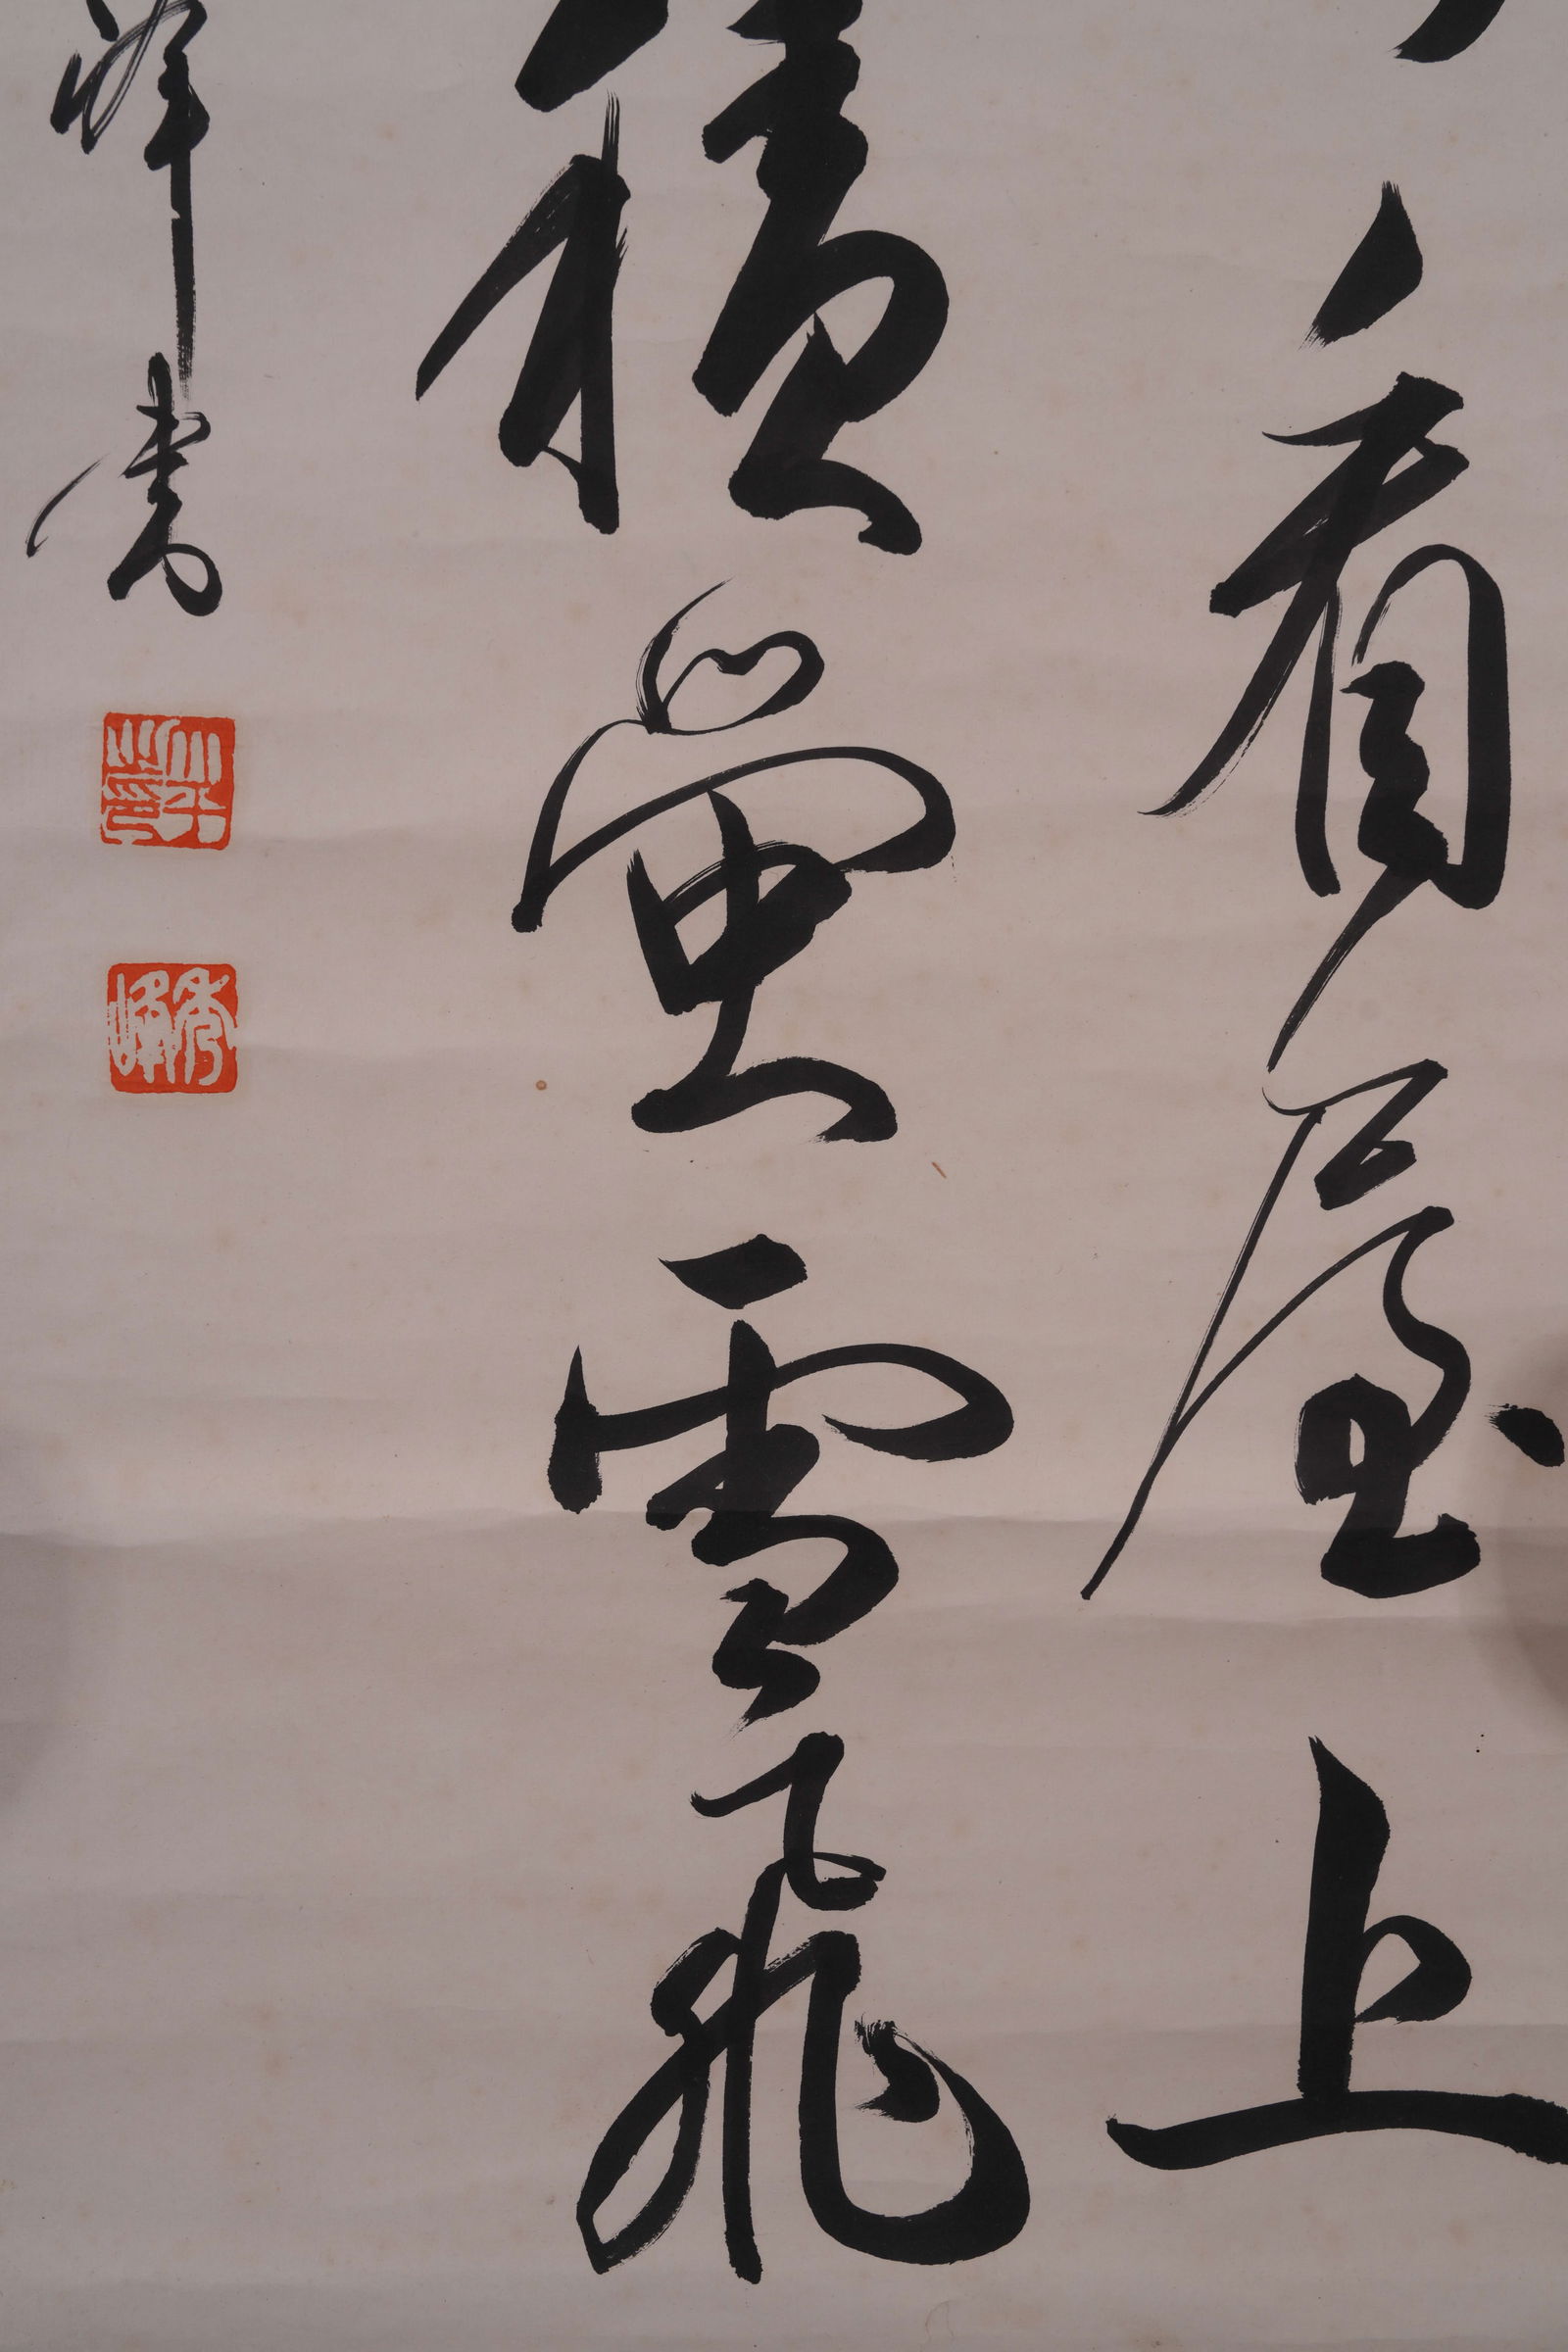 看屋上
積螢雪飛
峰書
秀峰